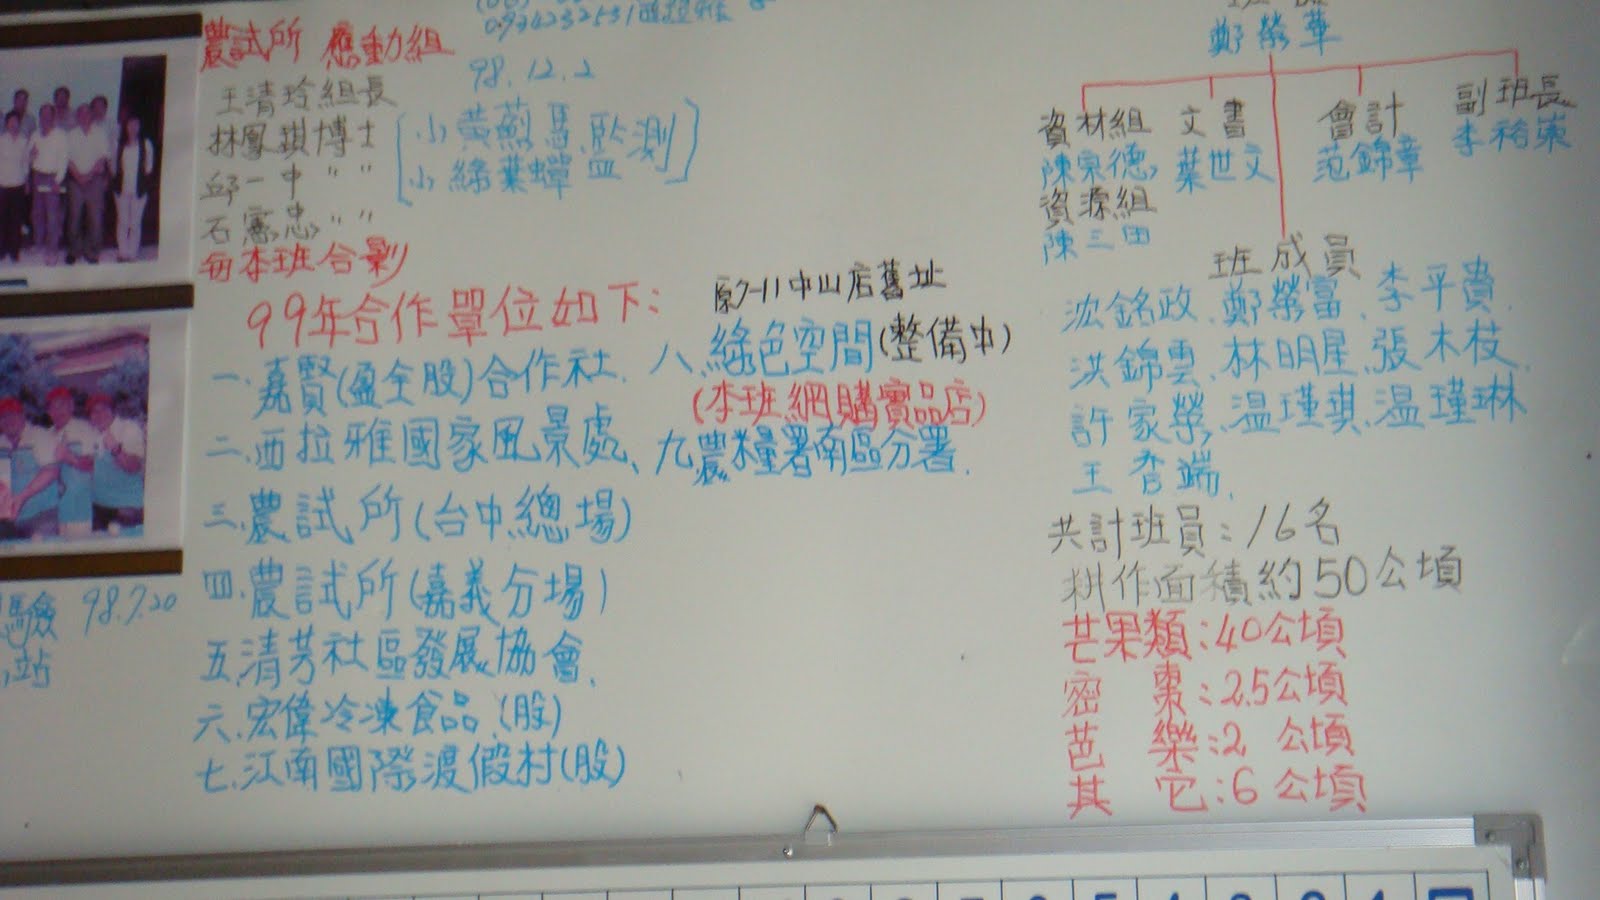 0934232531西拉雅
農試所 應動組
98.12.2
王清玲組長
林鳳琪博士
邱一中 〃 〃
石憲忠 〃 〃
小黃薊馬監測
小綠葉蟬
與本班合影
99年合作單位如下：
一.嘉賢(盈全股)合作社.
二.西拉雅國家風景處、
三.農試所(台中總場)
四.農試所(嘉義分場)
五.清芳社區發展協會.
六.宏偉冷凍食品.(股)
七.江南國際渡假村(股)
原7-11中山店舊址
八.綠色空間(整備中)
(本班網購實品店)
九.農糧署南區分署.
98.7.20
站
鄭榮華
資材組
陳宗德
資源組
陳三田
文書
葉世文
會計
范錦章
副班長
李裕
班成員
沈銘政.鄭榮富.李平貴.
洪錦雲.林明星.張木枝.
許家榮.温瑾琪.温瑾琳
王杏端.
共計班員：16名
耕作面積約50公頃
芒果類：40公頃
密 棗：2.5公頃
芭 樂：2 公頃
其 它：6公頃